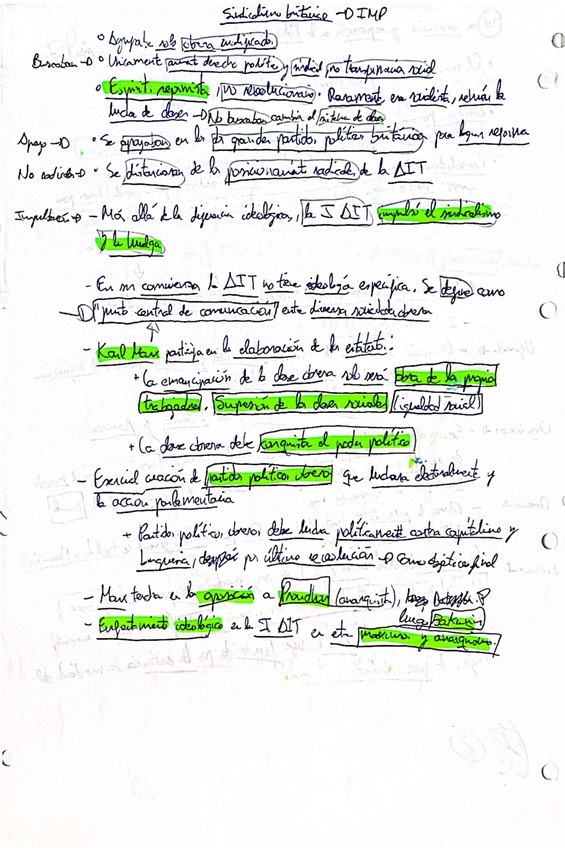 Sindicalismo británico → IMP
° Agrupaba solo obreros cualificados
Buscaban → ° Únicamente derecho político y sindical no transformación social
° Espíritu reformista, no revolucionario. Raramente, era socialista, la
lucha de clases → No buscaban cambiar el sistema de clases
Apoyo → ° Se apoyaban en los grandes partidos políticos británicos para lograr reformas
No radicales → ° Se distanciaron de los posicionamientos radicales de la AIT
Impulsaron → - Más allá de la ideológica, la I AIT impulsó el sindicalismo
y la huelga
- En sus comienzos la AIT no tiene ideología específica. Se define como
→ "punto central de comunicación" entre diversas sociedades obreras
- Karl Marx participa en la elaboración de los estatutos:
+ La emancipación de la clase obrera solo será obra de los propios
trabajadores. Supresión de las clases sociales (igualdad social)
+ La clase obrera debe conquistar el poder político
- Esencial creación de partidos políticos obreros que lucharan electoralmente y
la acción parlamentaria
+ Partidos políticos obreros debe luchar políticamente contra capitalismo y
burguesía, por último revolución → Como objetivo final
- Marx tendrá en la oposición a Proudhon (anarquista),
luego Bakunin
- Enfrentamiento ideológico en la I AIT entre marxismo y anarquismo.
2